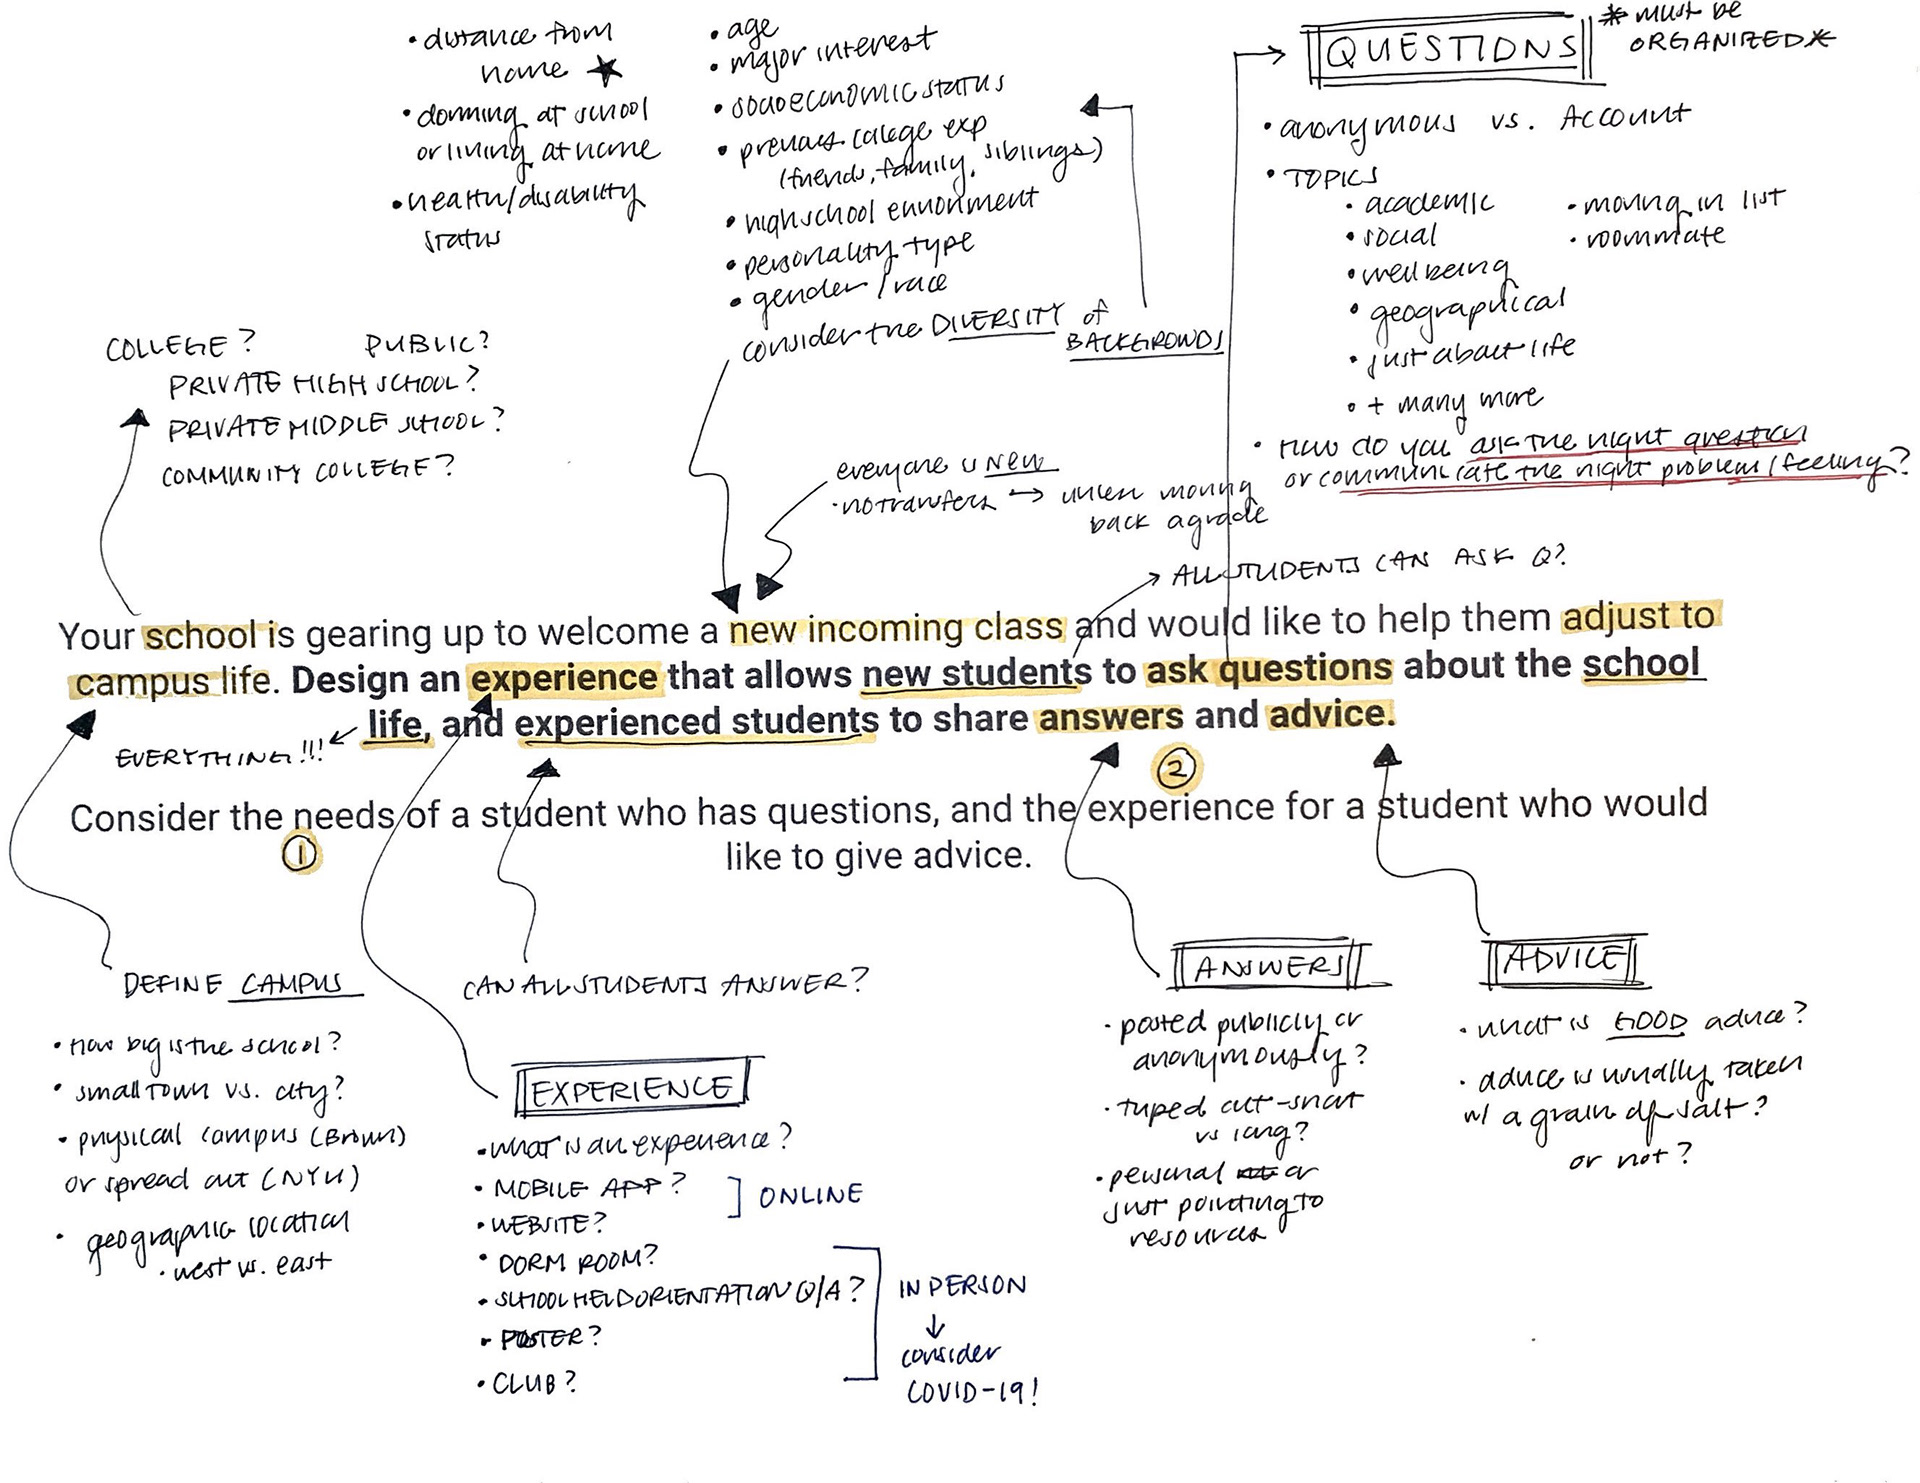 • distance from
home ★
• dorming at school
or living at home
• health/disability
status
• age
• major interest
• socioeconomic status
• previous college exp
(friends, family, siblings)
• highschool environment
• personality type
• gender / race
consider the DIVERSITY of
BACKGROUNDS
QUESTIONS
* must be
ORGANIZED *
• anonymous vs. Account
• TOPICS
• academic
• social
• wellbeing
• geographical
• just about life
• + many more
• moving in list
• roommate
• How do you ask the right question
or communicate the right problem / feeling?
COLLEGE? PUBLIC?
PRIVATE HIGH SCHOOL?
PRIVATE MIDDLE SCHOOL?
COMMUNITY COLLEGE?
everyone is new
• no transfers → unless moving
back a grade
→ ALL STUDENTS CAN ASK Q?
Your school is gearing up to welcome a new incoming class and would like to help them adjust to
campus life. Design an experience that allows new students to ask questions about the school
life, and experienced students to share answers and advice.
EVERYTHING!!!
②
Consider the needs of a student who has questions, and the experience for a student who would
like to give advice.
①
DEFINE CAMPUS
• how big is the school?
• small town vs. city?
• physical campus (Brown)
or spread out (NYU)
• geographic location
• west vs. east
CAN ALL STUDENTS ANSWER?
EXPERIENCE
• what is an experience?
• MOBILE APP?
• WEBSITE?
ONLINE
• DORM ROOM?
• SCHOOL HELD ORIENTATION Q/A?
• POSTER?
• CLUB?
IN PERSON
↓
consider
COVID-19!
ANSWERS
• posted publicly or
anonymously?
• typed out - short
vs long?
• personal or
just pointing to
resources
ADVICE
• what is GOOD advice?
• advice is usually taken
w/ a grain of salt?
or not?